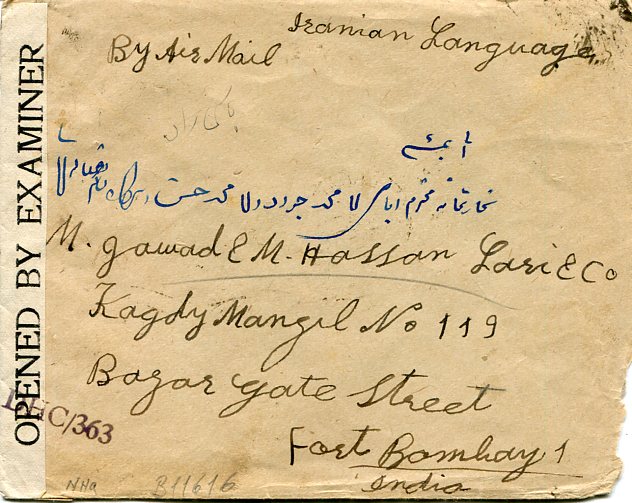 Iranian Language
By Air Mail
بمبئی
تجارتخانه محترم اقای محمد جواد و محمد حسن
M. Gawad & M. Hassan Lari & Co
Kagdy Mangil No 119
Bazar Gate Street
Fort Bombay 1
India
OPENED BY EXAMINER
DHC/363
NHa
B11616